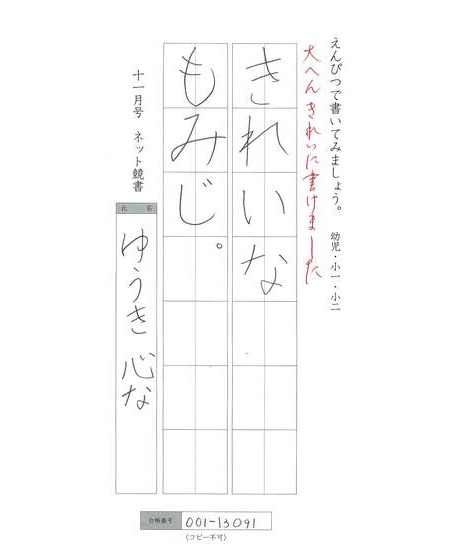 えんぴつで書いてみましょう。 幼児・小一・小二
大へんきれいに書けました
きれいな
もみじ。
十一月号 ネット競書
氏名
ゆうき 心な
台帳番号 001-13091
(コピー不可)